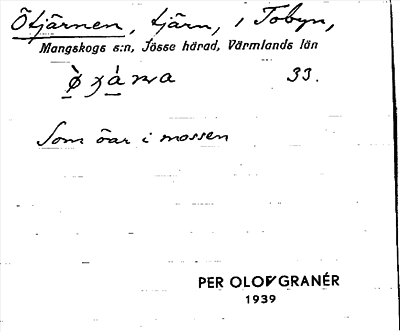 Ötjärnen, tjärn, i Tobyn,
Mangskogs s:n, Jösse härad, Värmlands län
33.
Som öar i mossen
PER OLOF GRANÉR
1939